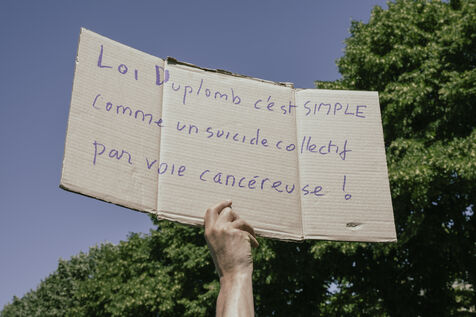 Loi Duplomb c'est SIMPLE
comme un suicide collectif
par voie cancéreuse !